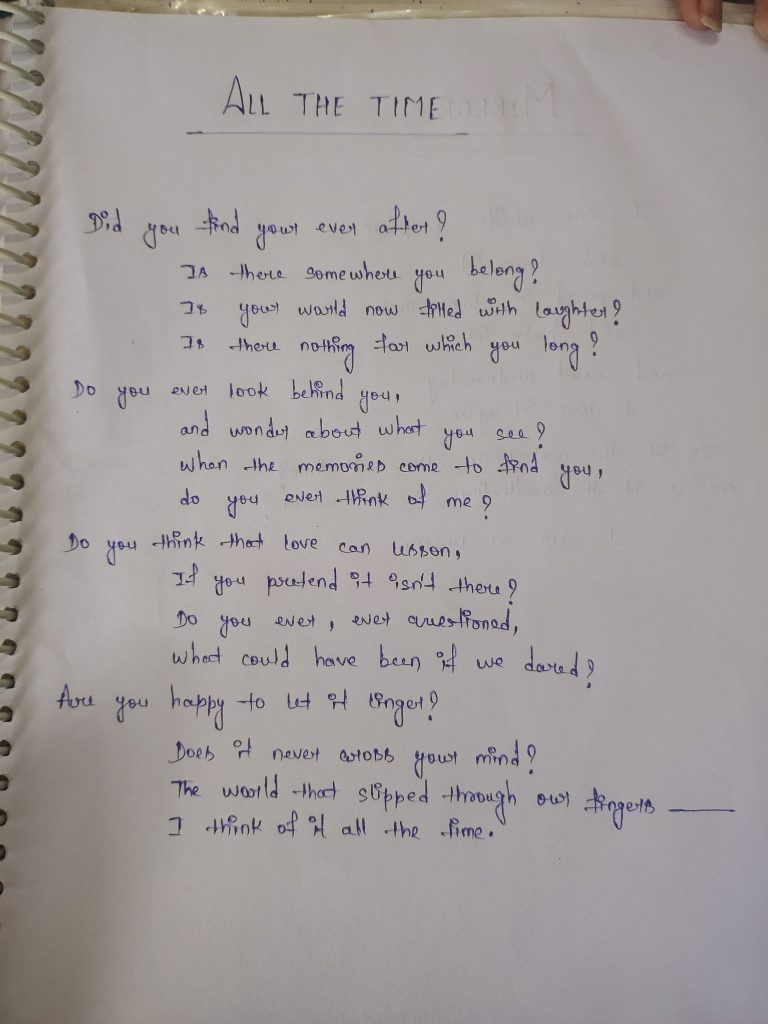 ALL THE TIME
Did you find your ever after?
Is there somewhere you belong?
Is your world now filled with laughter?
Is there nothing for which you long?
Do you ever look behind you,
and wonder about what you see?
when the memories come to find you,
do you ever think of me?
Do you think that love can lesson,
If you pretend it isn't there?
Do you ever, ever questioned,
what could have been if we dared?
Are you happy to let it linger?
Does it never cross your mind?
The world that slipped through our fingers ——
I think of it all the time.